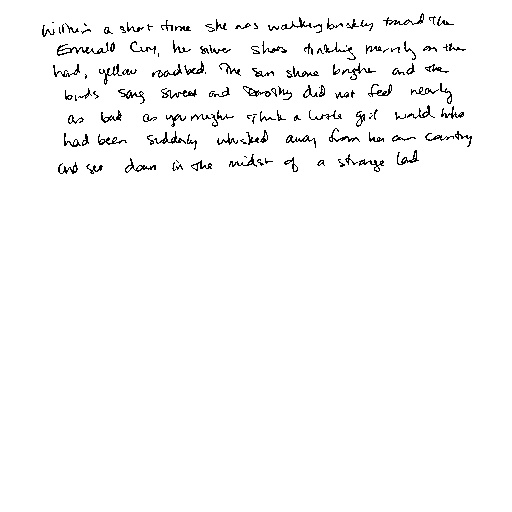 Within a short time she was walking briskly toward the
Emerald City, her silver shoes tinkling merrily on the
hard, yellow roadbed. The sun shone bright and the
birds sang sweet and Dorothy did not feel nearly
as bad as you might think a little girl would who
had been suddenly whisked away from her own country
and set down in the midst of a strange land